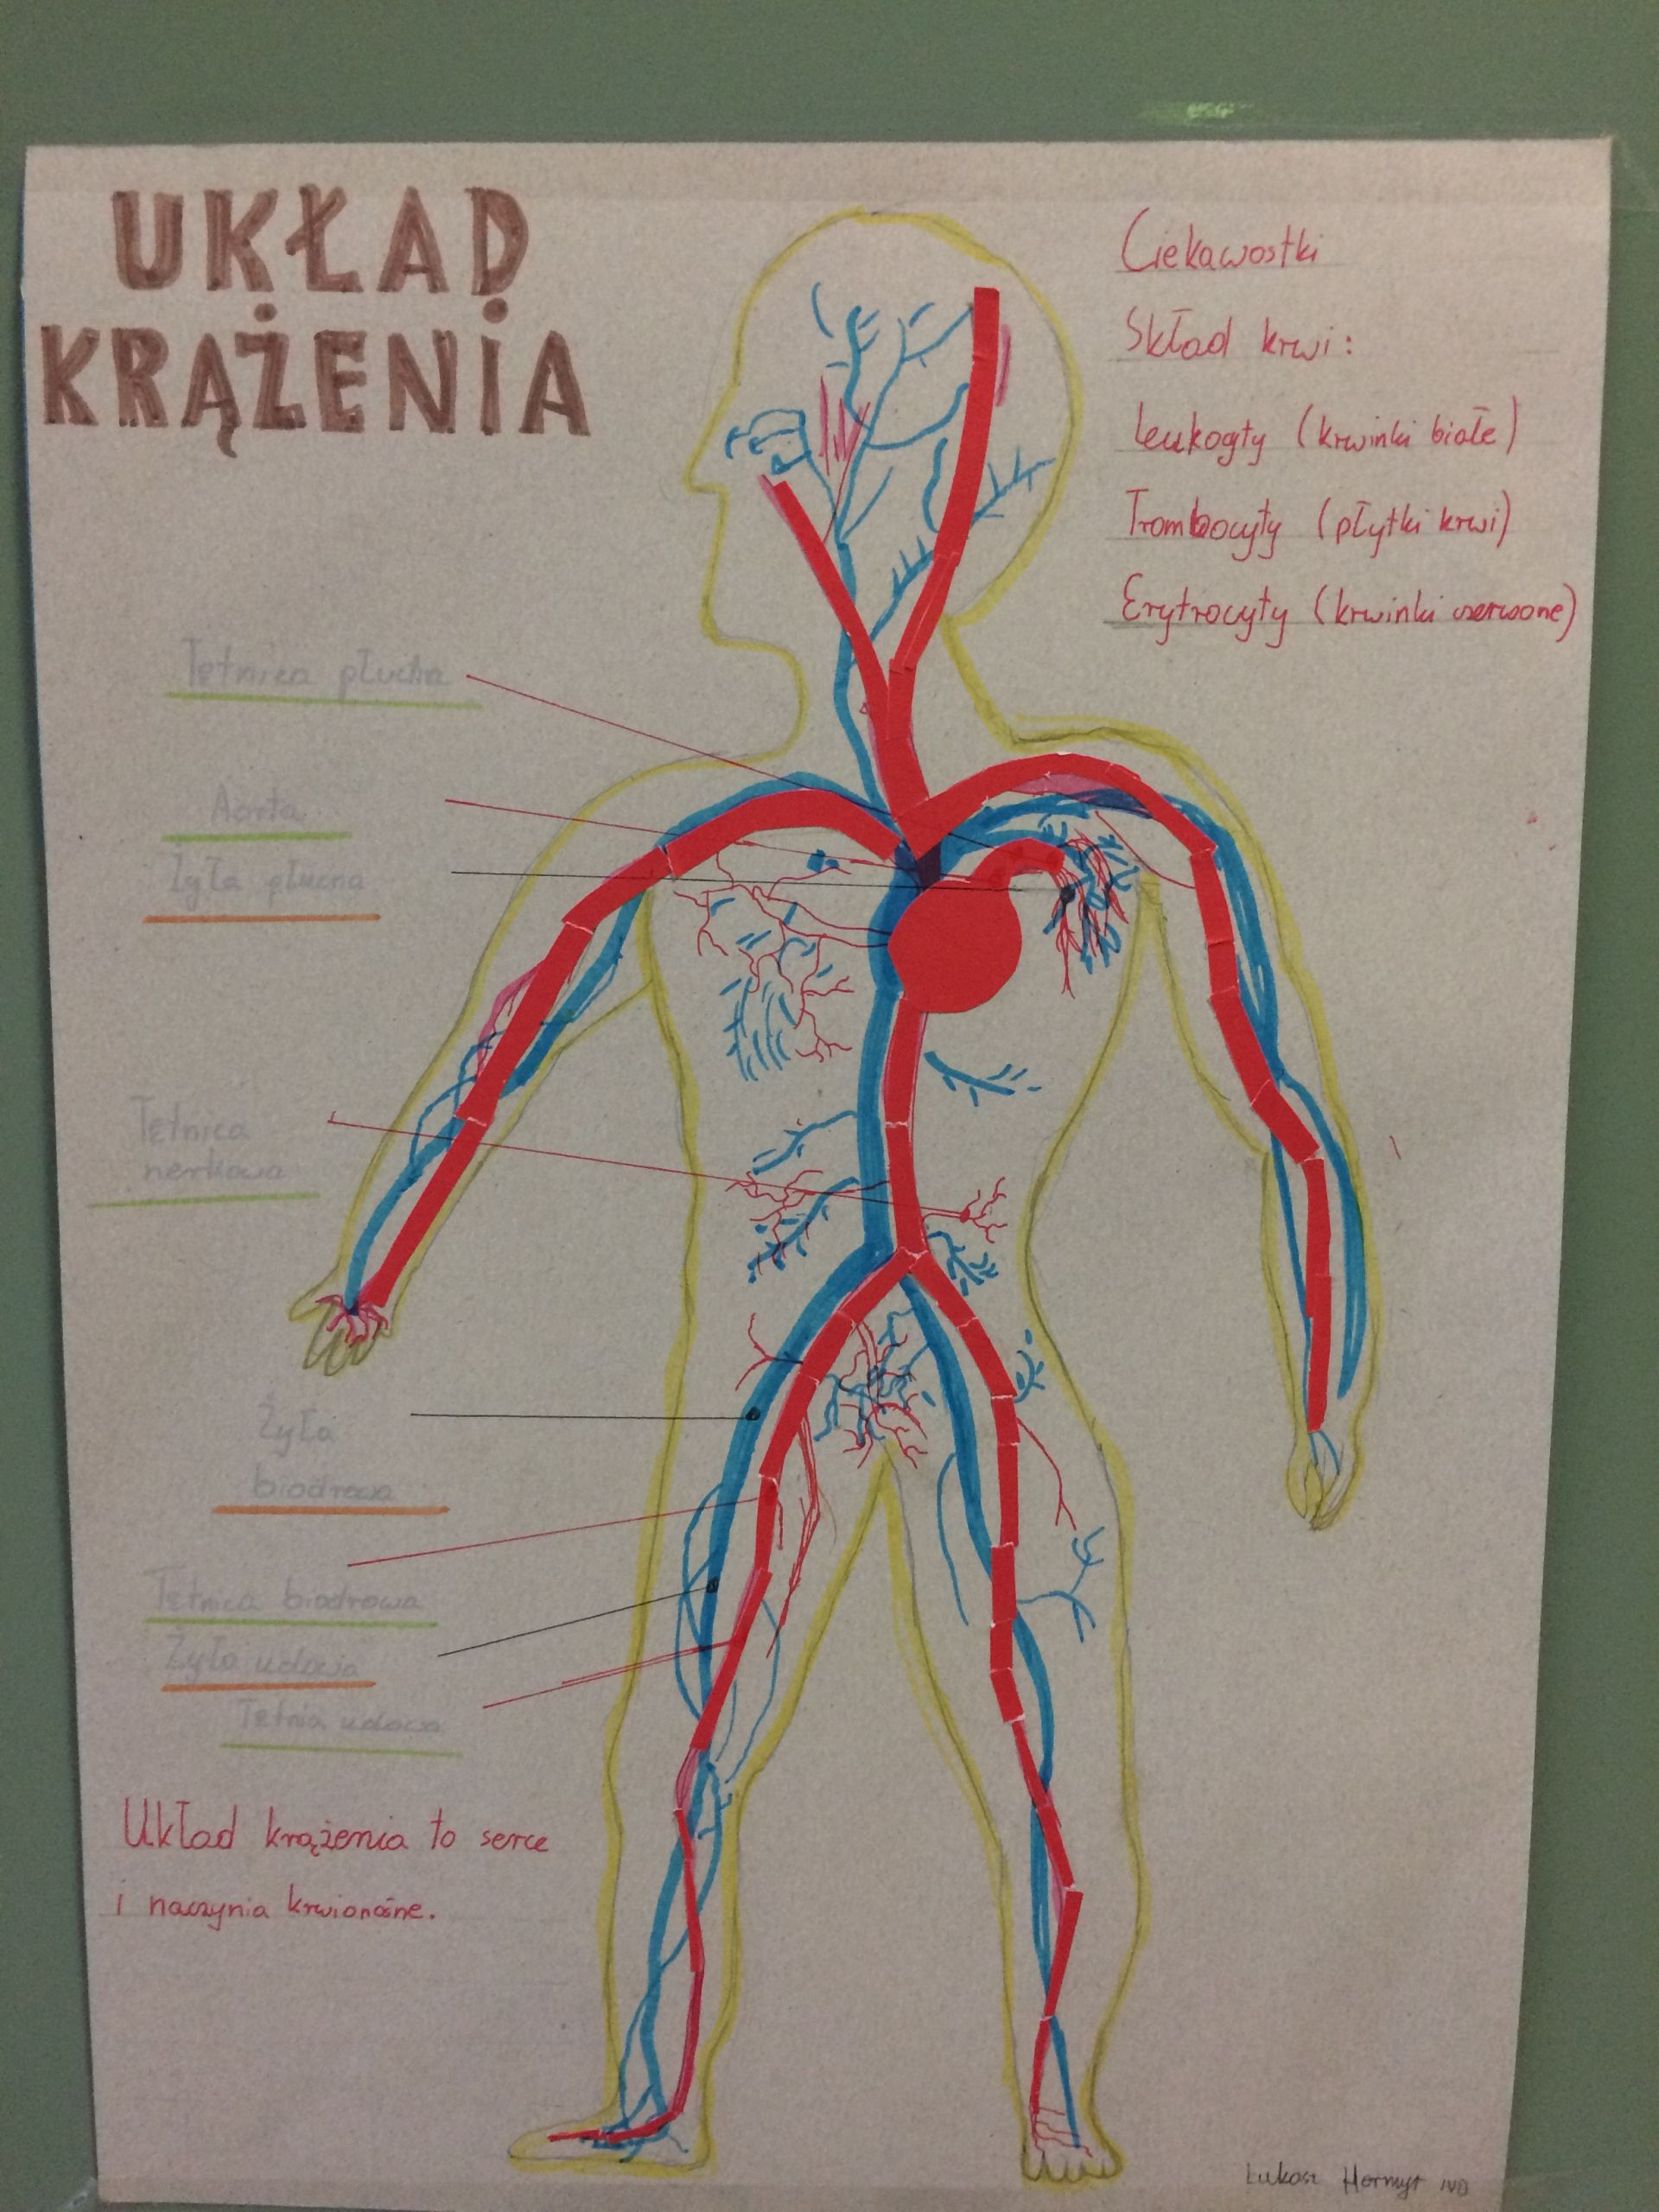 UKŁAD
KRĄŻENIA
Ciekawostki
Skład krwi:
Leukocyty (krwinki białe)
Trombocyty (płytki krwi)
Erytrocyty (krwinki czerwone)
Tętnica płucna
Aorta
Żyła płucna
Tętnica
nerkowa
Żyła
biodrowa
Tętnica biodrowa
Żyła udowa
Tętnia udowa
Układ krążenia to serce
i naczynia krwionośne.
Łukasz